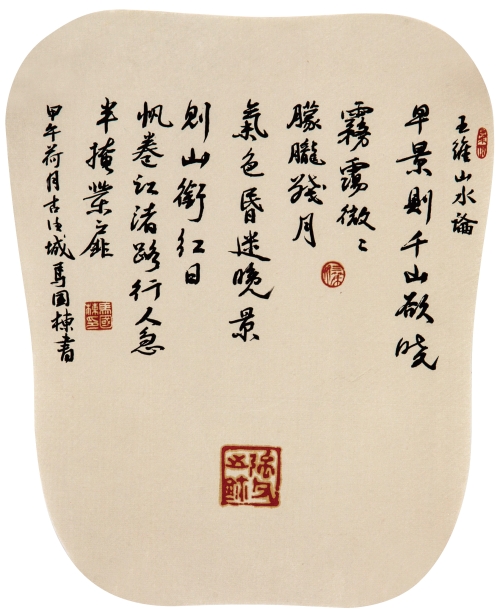 王維山水論
早景則千山欲曉
霧靄微〻
朦朧殘月
氣色昏迷晚景
則山銜红日
帆卷江渚路行人急
半掩柴扉
甲午荷月古洺城馬国棟書
馬國棟印